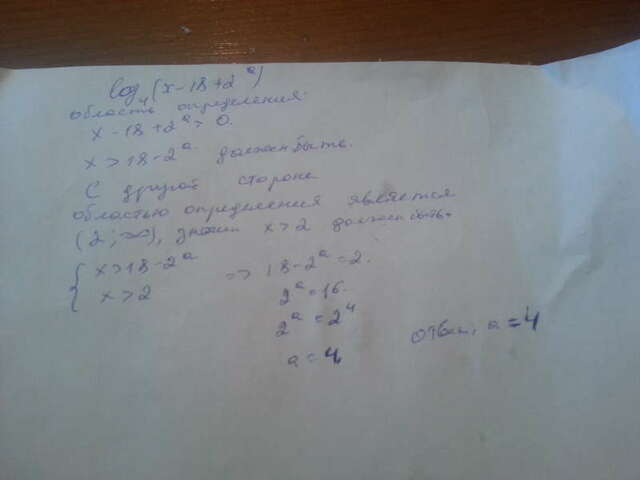 log₄(x-18+2ᵃ)
область определения:
x-18+2ᵃ>0.
x>18-2ᵃ должен быть.
С другой стороны
областью определения является
(2;∞), значит x>2 должен быть.
{ x>18-2ᵃ => 18-2ᵃ=2.
x>2
2ᵃ=16.
2ᵃ=2⁴
a=4
ответ, a=4